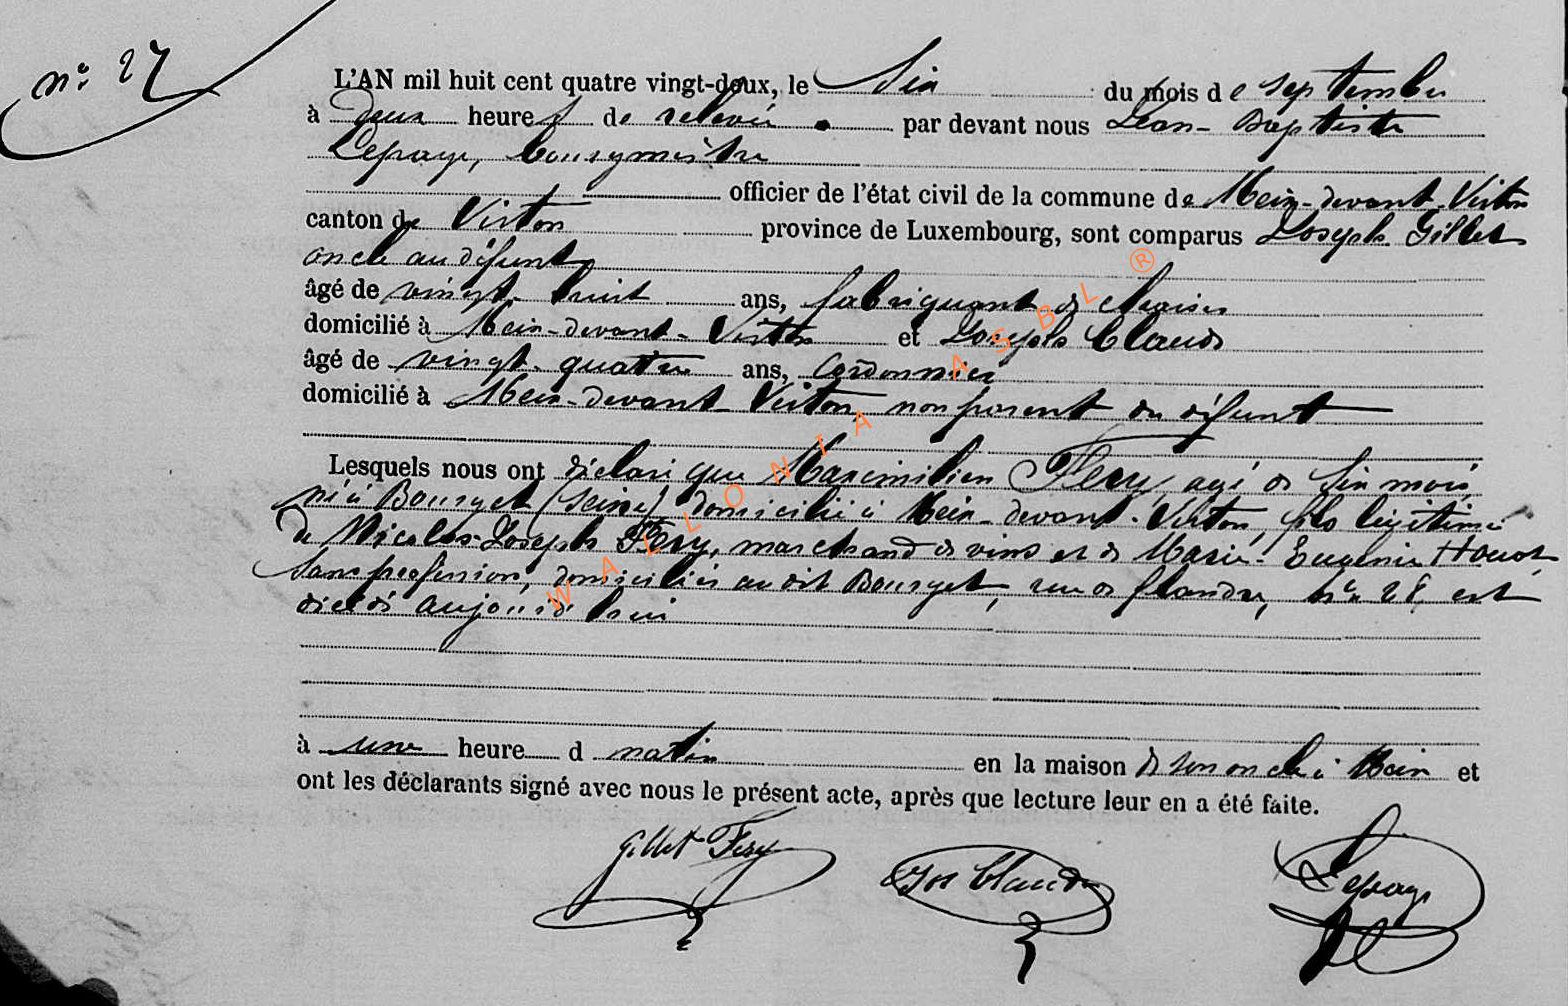 n° 27
L'AN mil huit cent quatre vingt-deux, le Six du mois de septembre
à deux heures de relevée par devant nous Jean-Baptiste
Lepage, bourgmestre
officier de l'état civil de la commune de Meix-devant-Virton
canton de Virton province de Luxembourg, sont comparus Joseph Gillet
oncle au défunt
âgé de vingt-huit ans, fabriquant de chaises
domicilié à Meix-devant-Virton et Joseph Claude
âgé de vingt-quatre ans, Cordonnier
domicilié à Meix-devant-Virton, non parent du défunt
Lesquels nous ont déclaré que Maximilien Fery, agé de Six mois
né à Bourget (Seine) domicilié à Meix-devant-Virton, fils légitime
de Nicolas-Joseph Fery, marchand de vins et de Marie-Eugénie Houot,
Sans profession, domiciliés au dit Bourget, rue de flandre, n° 28, est
décédé aujourd'hui
à une heure d matin en la maison de son oncle à Meix et
ont les déclarants signé avec nous le présent acte, après que lecture leur en a été faite.
Gillet Fery Jos Claude Lepage
WALLONIA ASBL ®